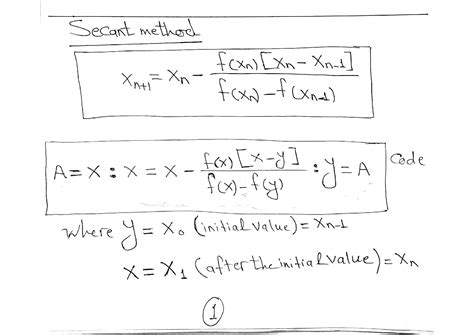 Secant method
Xn+1 = Xn - f(Xn) [Xn - Xn-1] / f(Xn) - f(Xn-1)
A = X : X = X - f(x) [X-y] / f(x) - f(y) : y = A Code
where y = X0 (initial value) = Xn-1
X = X1 (after the initial value) = Xn
1